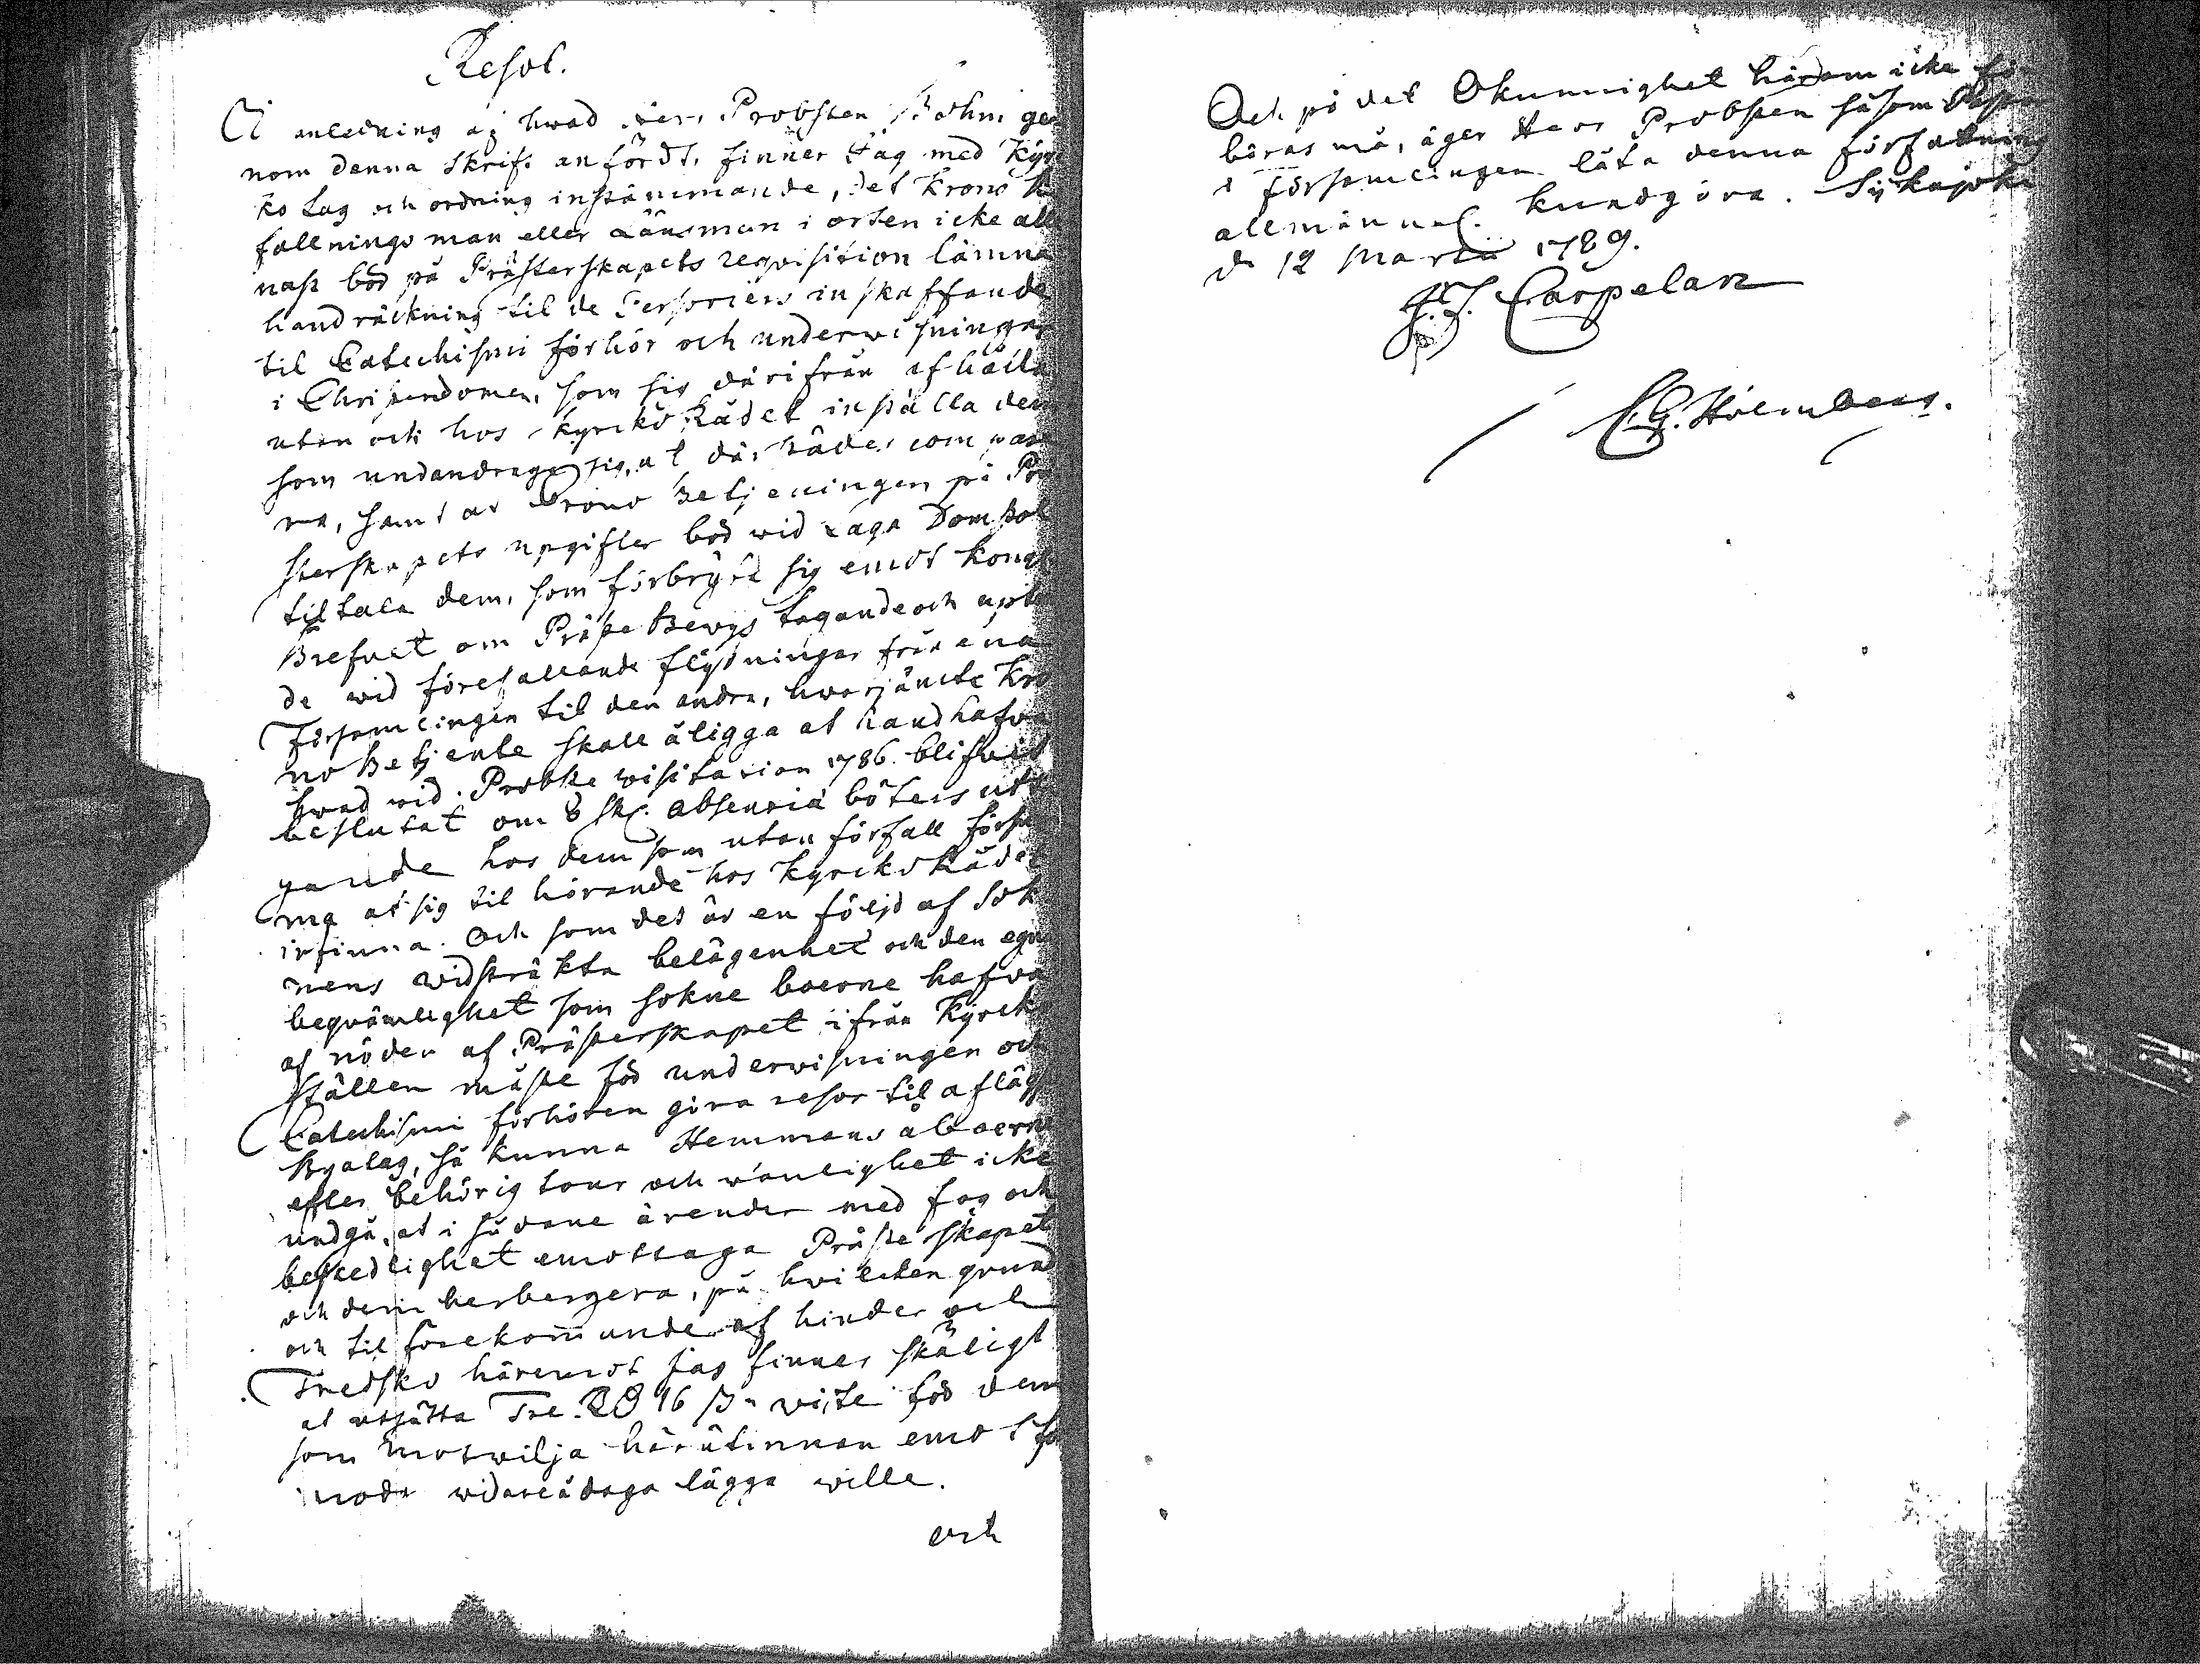 Resol.
I anledning af hwad Herr Probsten Bohm ge
nom denna skrift anfördt, finner Jag med Kyr
ko Lag och ordning instämmande, det Krono
fallnings man eller Länsman i orten icke all
nast bör på Prästerskapets requisition lämna
handräckning til de Personers inskaffande
til Catechismi förhör och underwisningar
i Christendomen, som sig därifrån afhålla
utan och hos kyrko Rådet inställa dem
som undandraga sig, at där
ra, samt at Krono Betjeningen på Prä
sterskapets upgifter bör wid Laga Domstol
tiltala dem, som förbryta sig emot Kongl
Brefvet om Präste Bewys tagande och
de wid förefallande flytningar från ena
Församlingen til den andra, hwarjämte Kro
no Betjente skall åligga at handhafva
hwad wid Probste wisitation 1786 blifwit
beslutat om 8 sk. absentiæ böters utt
gande hos dem som utan förfall försu
ma at sig til hörande hos Kyrcko Rådet
infinna. Och som det är en följd af Sok
nens widsträkta belägenhet och den egna
beqvämlighet som sokne boerne hafva
af nöden at Prästerskapet ifrån Kyrck
ställen måste för underwisningen och
Catechismi förhören göra resor til aflägs
Byalag, så kunna Hemmans åboerne
efter behörig tour och wanlighet icke
undgå, at i sådane ärender med fog och
beskedlighet emottaga Präste skapet
och dem herbergera, på hwilcken grund
och til förekommande af hinder och
Tredsko häremot jag finner skäligt
at utsätta Tre RD 16 s. wite för dem
som motwilja härutinnan emot
moda widare ådaga lägga wille.
och
Och på det Okunnighet härom icke fö
bäras må, äger Herr Probsten såsom
i Församlingen låta denna författning
allmännel. kundgöra. Sijkajoki
d. 12 Martii 1789.
J. J. Carpelan
C. G. Holmberg.